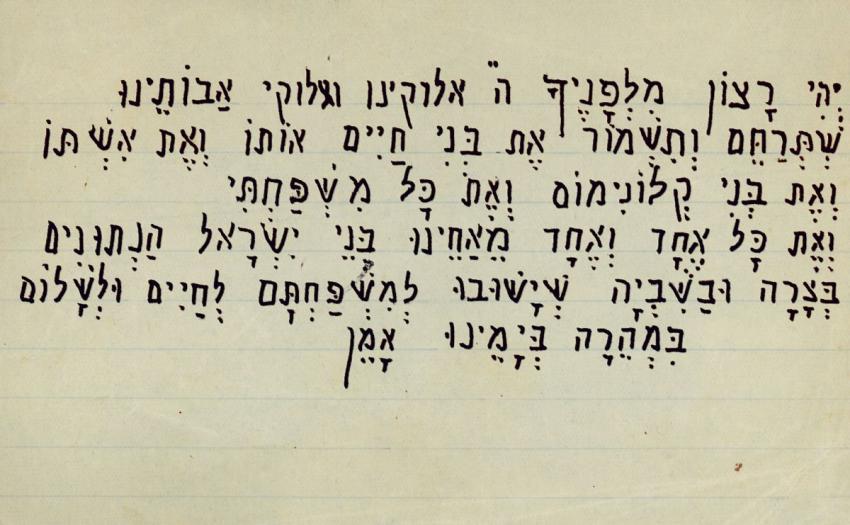 יְהִי רָצוֹן מִלְפָנֶיךָ ה" אלוקינו ואלוקי אַבוֹתֵינוּ
שְׁתְּרַחֵם וְתִשְׁמוֹר אֶת בְּנִי חַיִים אוֹתוֹ וְאֶת אִשְׁתּוֹ
וְאֶת בְּנִי קְלוֹנִימוֹס וְאֶת כָּל מִשְׁפַּחְתִּי
וְאֶת כָּל אֶחָד וְאֶחָד מֵאַחֵינוּ בְּנֵי יִשְׂרָאל הַנְתוּנִים
בְּצָרָה וּבַשִׁבְיָה שְׁיָשׁוּבוּ לְמִשְׁפַּחְתָּם לְחַיִים וּלְשָׁלוֹם
בִּמְהֵרָה בְּיָמֵינוּ אָמֵן